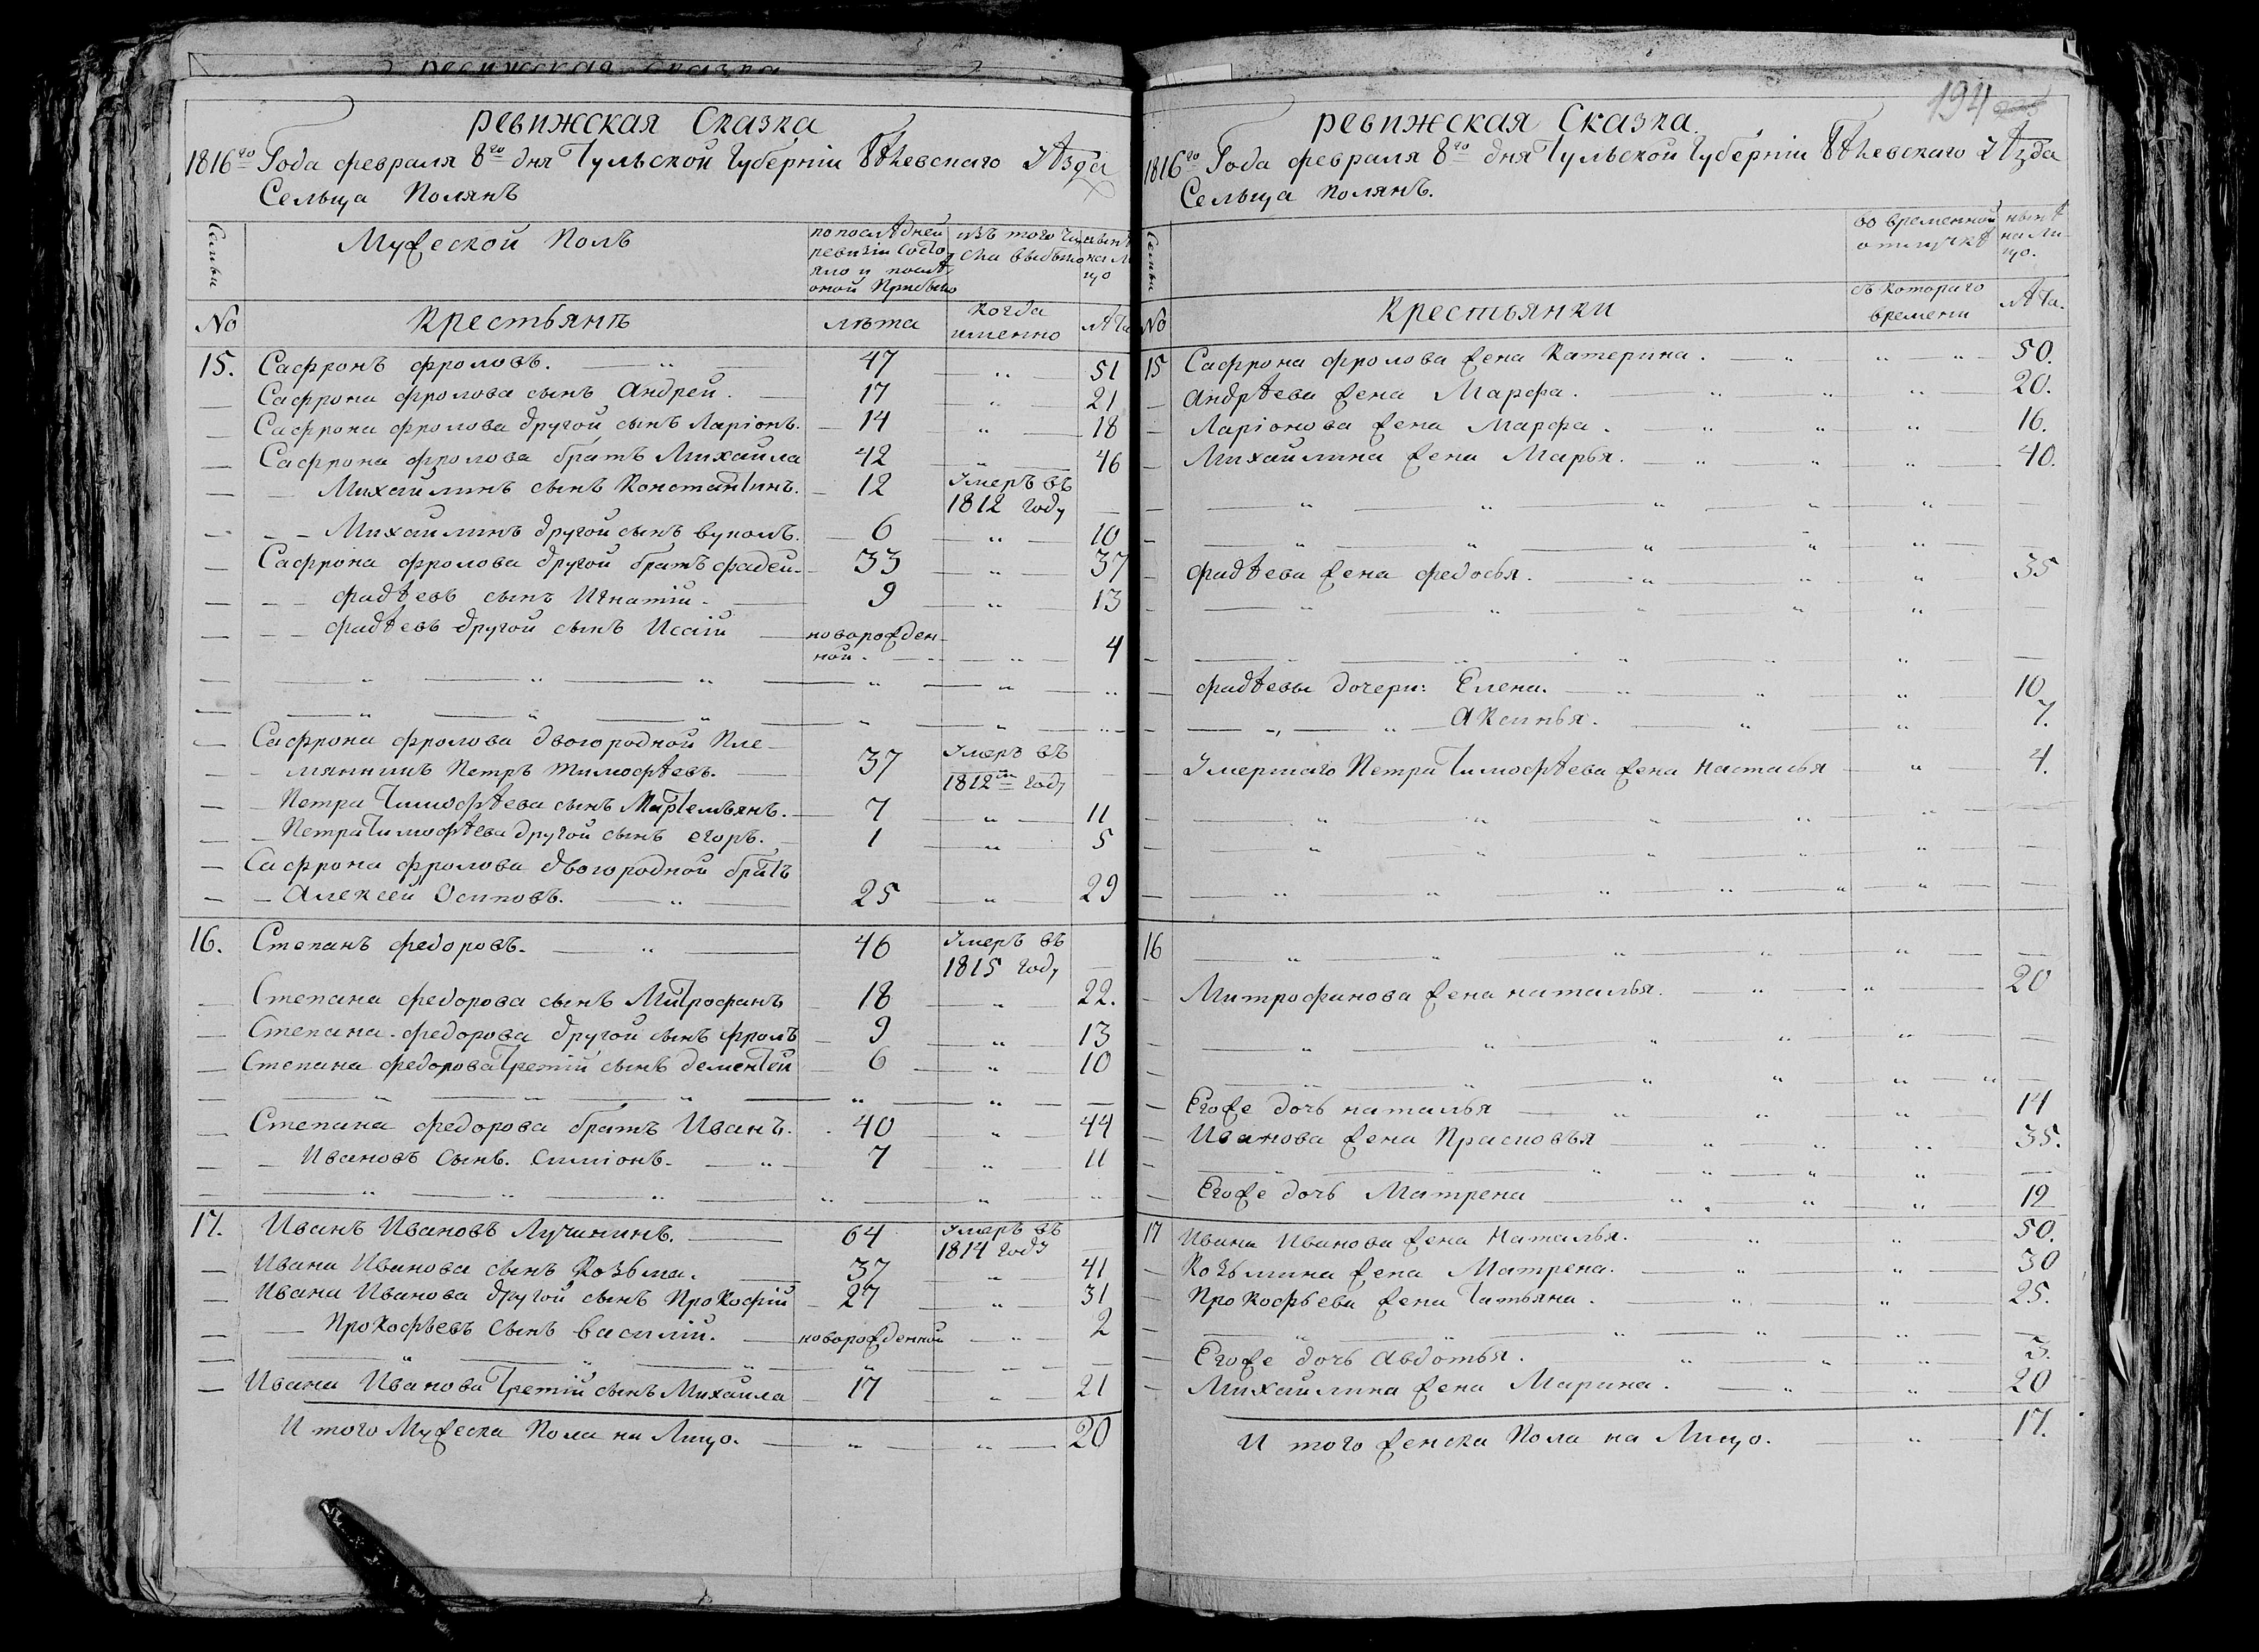 ревижская сказка
ревижская Сказка
1816го Года февраля 8го дня Тульской Губерніи Бѣлевскаго уѣзда
Сельца Полянъ
Семьи
Мужеской Полъ
по послѣдней ревизіи состояло и послѣ оной Прибыло
изъ того числа выбыло
нынѣ на лицо
No
Крестьянѣ
лѣта
когда именно
лѣта
15. Сафронъ фроловъ. 47 51
Сафрона фролова сынъ Андрей. 17 21
Сафрона фролова другой сынъ Ларіонъ. 14 18
Сафрона фролова братъ Михаила 42 46
Михайлинъ сынъ Константинъ. 12 Умеръ въ 1812 году
Михайлинъ другой сынъ вуколъ. 6 10
Сафрона фролова другой братъ фадей 33 37
фадѣевъ сынъ Игнатій. 9 13
фадѣевъ другой сынъ Исаій новорожденной. 4
Сафрона фролова двогородной Пле-
мянникъ Петръ тимофѣевъ. 37 Умеръ въ 1812м году
Петра Тимофѣева сынъ Мартемьянъ. 7 11
Петра Тимофѣева другой сынъ егоръ. 1 5
Сафрона фролова двогородной братъ
Алексей Осиповъ. 25 29
16. Степанъ федоровъ. 46 Умеръ въ 1815 году
Степана федорова сынъ Митрофанъ 18 22.
Степана федорова другой сынъ фролъ 9 13
Степана федорова Третій сынъ дементей 6 10
Степана федорова братъ Иванъ. 40 44
Ивановъ Сынъ. Симіонъ. 7 11
17. Иванъ Ивановъ Лучининъ. 64 Умеръ въ 1814 году
Ивана Иванова сынъ Козьма. 37 41
Ивана Иванова другой сынъ Прокофій 27 31
Прокофьевъ Сынъ василій. новорожденной 2
Ивана Иванова Третій сынъ Михаила 17 21
И того Мужеска Пола на Лицо. 20
194
ревижская Сказка.
1816го Года февраля 8го дня Тульской Губерніи Бѣлевскаго уѣзда
Сельца Полянъ.
Семьи
во временной отлучкѣ
нынѣ на лицо.
No
Крестьянки
съ котораго времени
лѣта.
15 Сафрона фролова жена Катерина. 50.
Андрѣева жена Марфа. 20.
Ларіонова жена Марфа. 16.
Михайлина жена Марья. 40.
фадѣева жена федосья. 35
фадѣевы дочери: Елена. 10
Аксинья. 7.
Умершаго Петра Тимофѣева жена Насталья 4.
16
Митрофанова жена наталья. 20
Егоже дочь наталья 14
Иванова жена Прасковья 35.
Егоже дочь Матрена 12
17 Ивана Иванова жена Наталья. 50.
Козьмина жена Матрена. 30
Прокофьева жена Татьяна. 25.
Егоже дочь Авдотья. 3.
Михайлина жена Марина. 20
И того женска Пола на Лицо. 17.